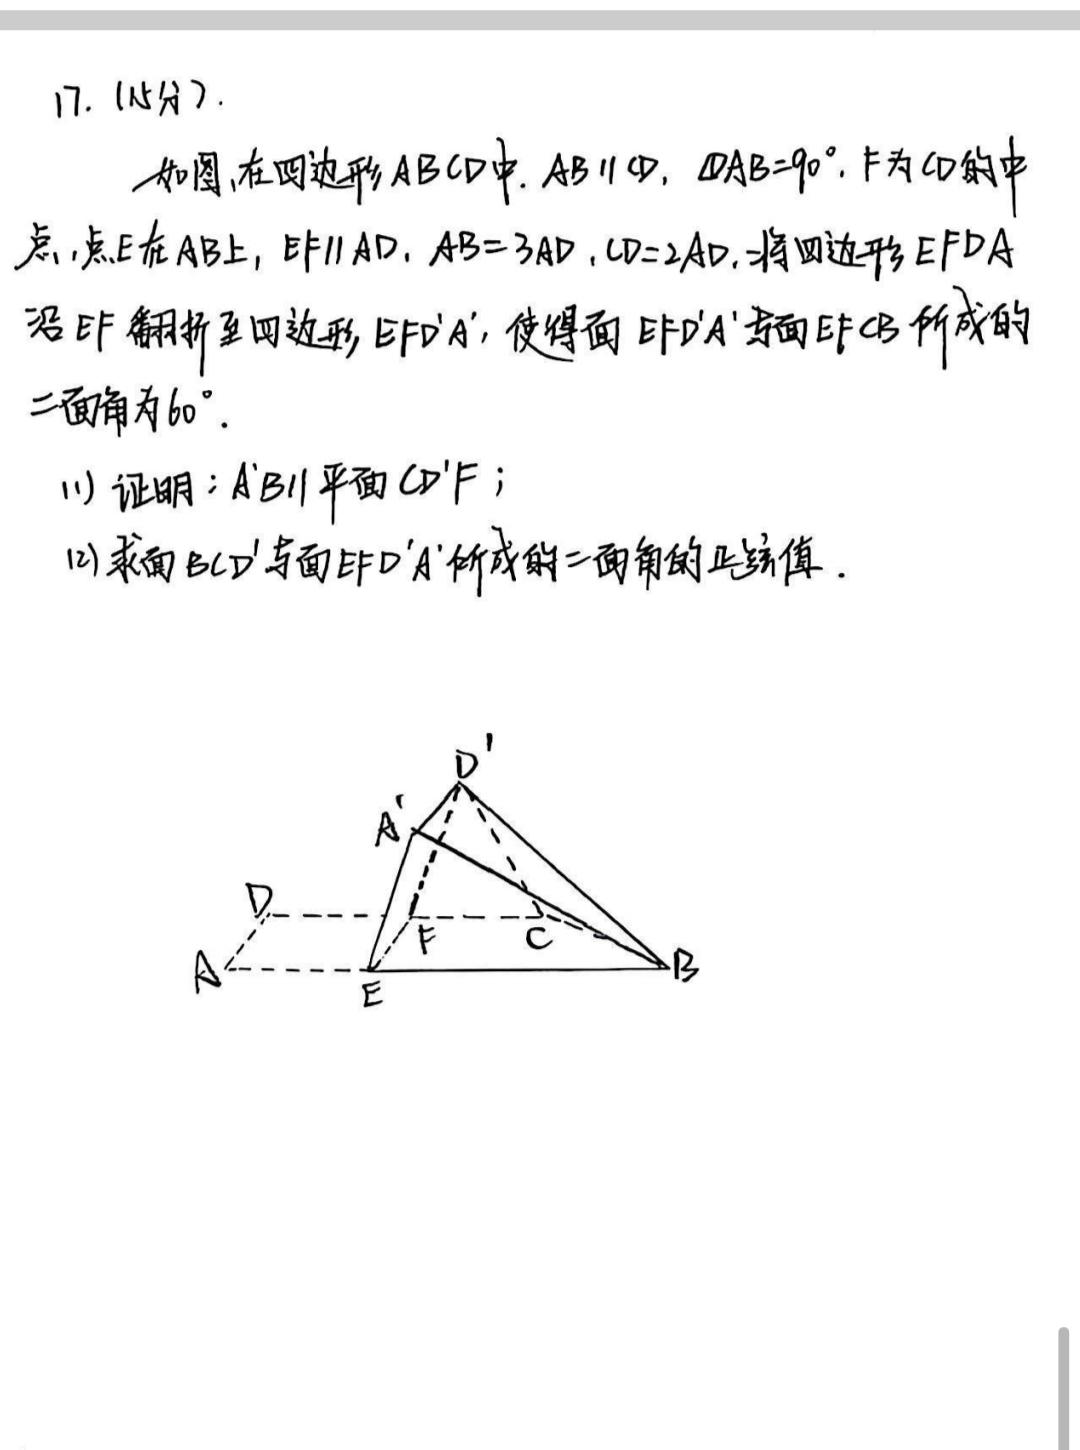 17. (15分).
如图,在四边形ABCD中. AB∥CD, ∠DAB=90°. F为CD的中
点,点E在AB上, EF∥AD. AB=3AD, CD=2AD. 将四边形EFDA
沿EF翻折至四边形EFD'A', 使得面EFD'A'与面EFCB所成的
二面角为60°.
(1) 证明: A'B∥平面CD'F;
(2) 求面BCD'与面EFD'A'所成的二面角的正弦值.
D'
A'
D
F
C
A
E
B